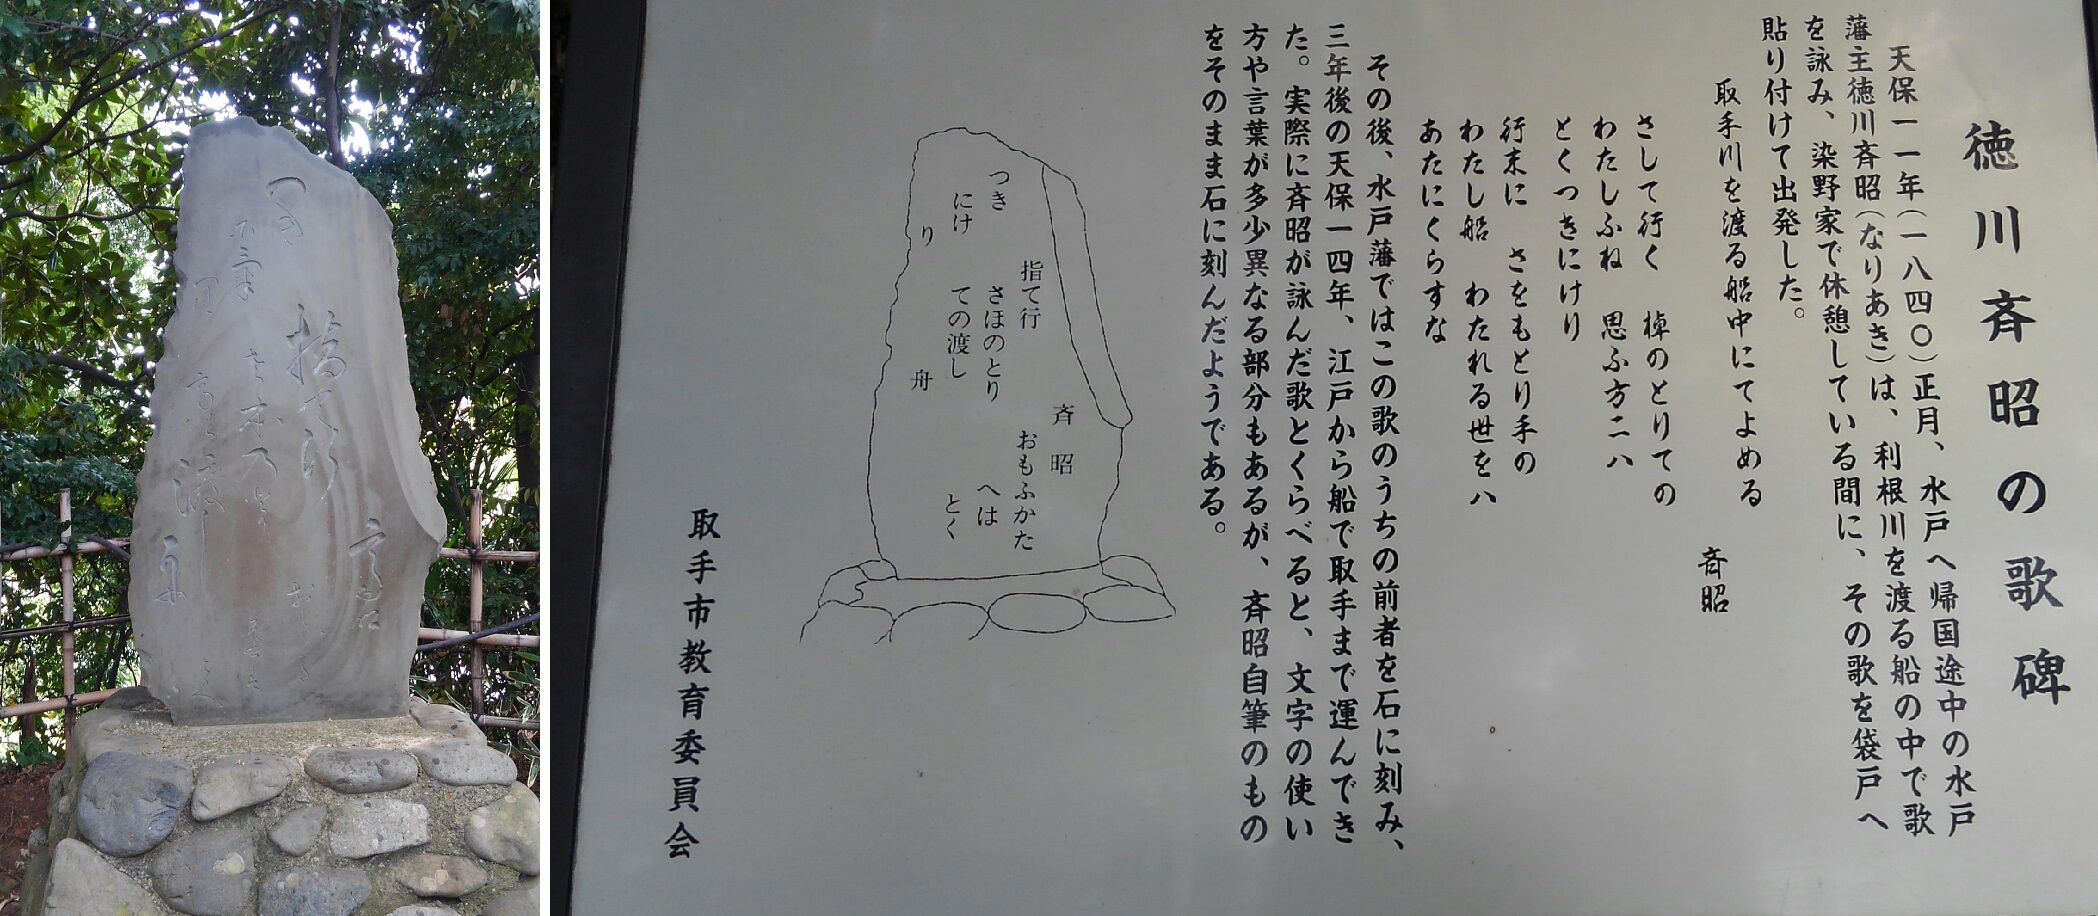 徳川斉昭の歌碑
天保一一年(一八四〇)正月、水戸へ帰国途中の水戸
藩主徳川斉昭(なりあき)は、利根川を渡る船の中で歌
を詠み、染野家で休憩している間に、その歌を袋戸へ
貼り付けて出発した。
取手川を渡る船中にてよめる
斉昭
さして行く 棹のとりての
わたしふね 思ふ方ニハ
とくつきにけり
行末に さをもとり手の
わたし船 わたれる世をハ
あたにくらすな
その後、水戸藩ではこの歌のうちの前者を石に刻み、
三年後の天保一四年、江戸から船で取手まで運んでき
た。実際に斉昭が詠んだ歌とくらべると、文字の使い
方や言葉が多少異なる部分もあるが、斉昭自筆のもの
をそのまま石に刻んだようである。
斉昭
指て行
おもふかた
さほのとり
へは
ての渡し
とく
舟
つき
にけ
り
取手市教育委員会